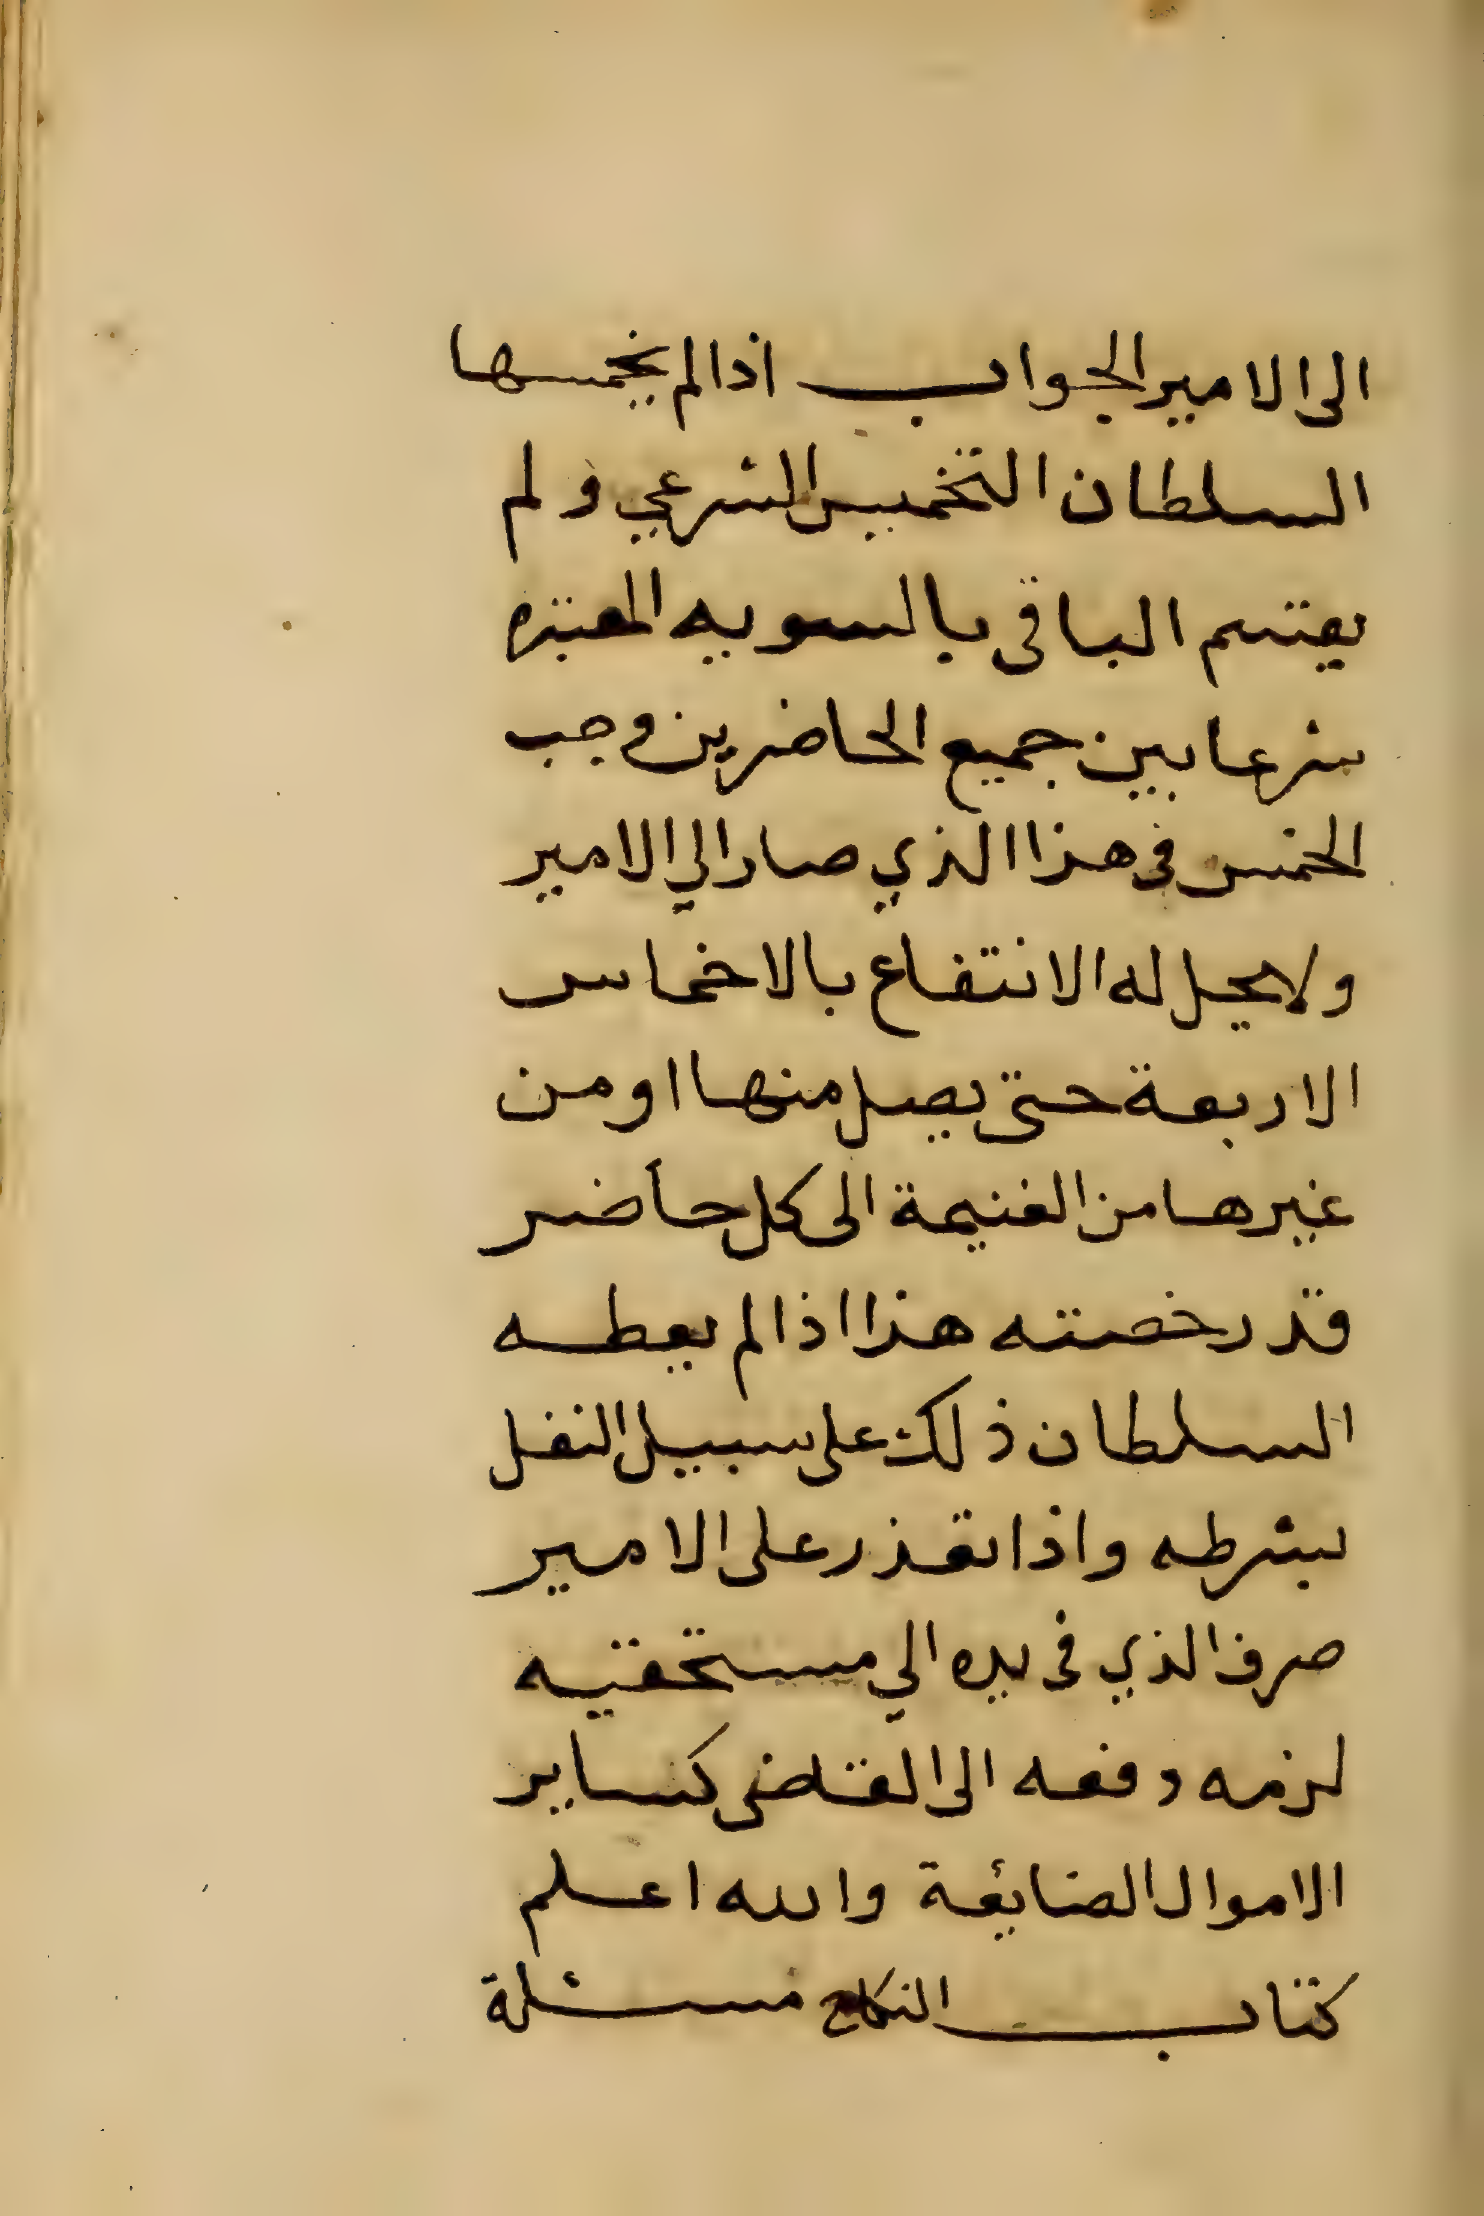 الى الامير الجواب اذا لم يخمسها
السلطان التخميس الشرعي ولم
يقتسم الباقى بالسويه المعتبره
شرعا بين جميع الحاضرين وجب
الخمس فى هذا الذي صار الي الامير
ولا يحل له الانتفاع بالاخماس
الاربعة حتى يصل منها او من
غيرها من الغنيمة الى كل حاضر
قدر خصته هذا اذا لم يعطه
السلطان ذلك على سبيل النفل
بشرطه واذا تعذر على الامير
صرف الذي فى يده الي مستحقيه
لزمه دفعه الى القاضى كساير
الاموال الضايعة والله اعلم
كتاب النكاح مسئلة